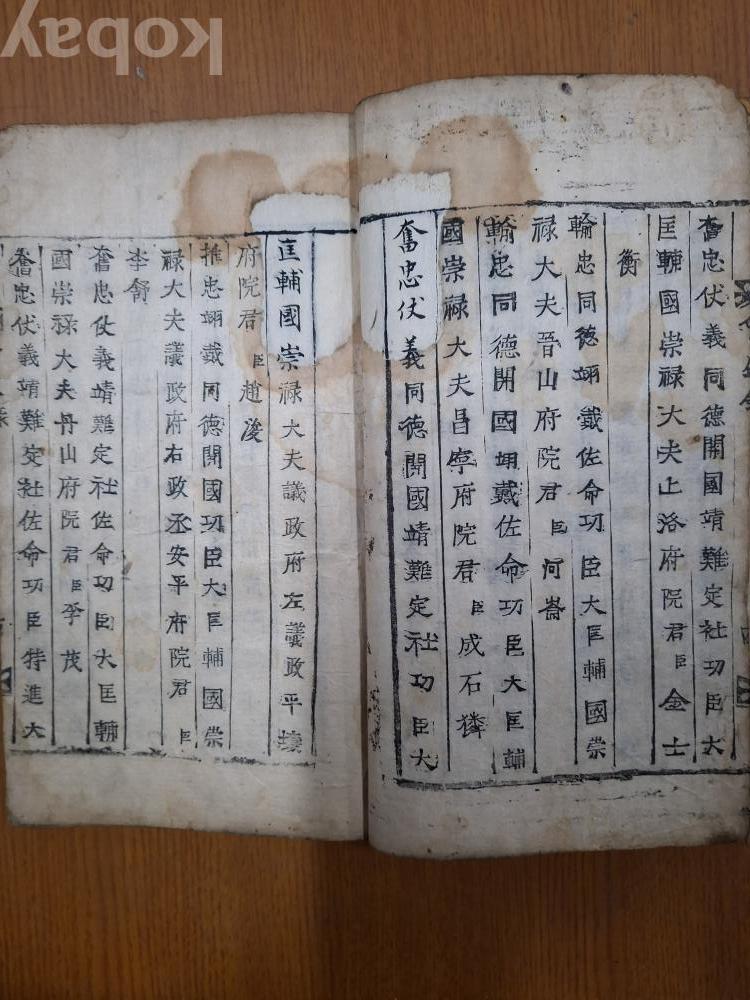 kobay
奮忠仗義同德開國靖難定社功臣大
匡輔國崇禄大夫上洛府院君臣金士
衡
輸忠同德翊戴佐命功臣大匡輔國崇
禄大夫晉山府院君臣河崙
輸忠同德開國翊戴佐命功臣大匡輔
國崇禄大夫昌寧府院君臣成石璘
奮忠仗義同德開國靖難定社功臣大
匡輔國崇禄大夫議政府左議政平壤
府院君臣趙浚
推忠翊戴同德開國功臣大匡輔國崇
禄大夫議政府右政丞安平府院君臣
李舒
奮忠仗義靖難定社佐命功臣大匡輔
國崇禄大夫丹山府院君臣李茂
奮忠仗義靖難定社佐命功臣特進大